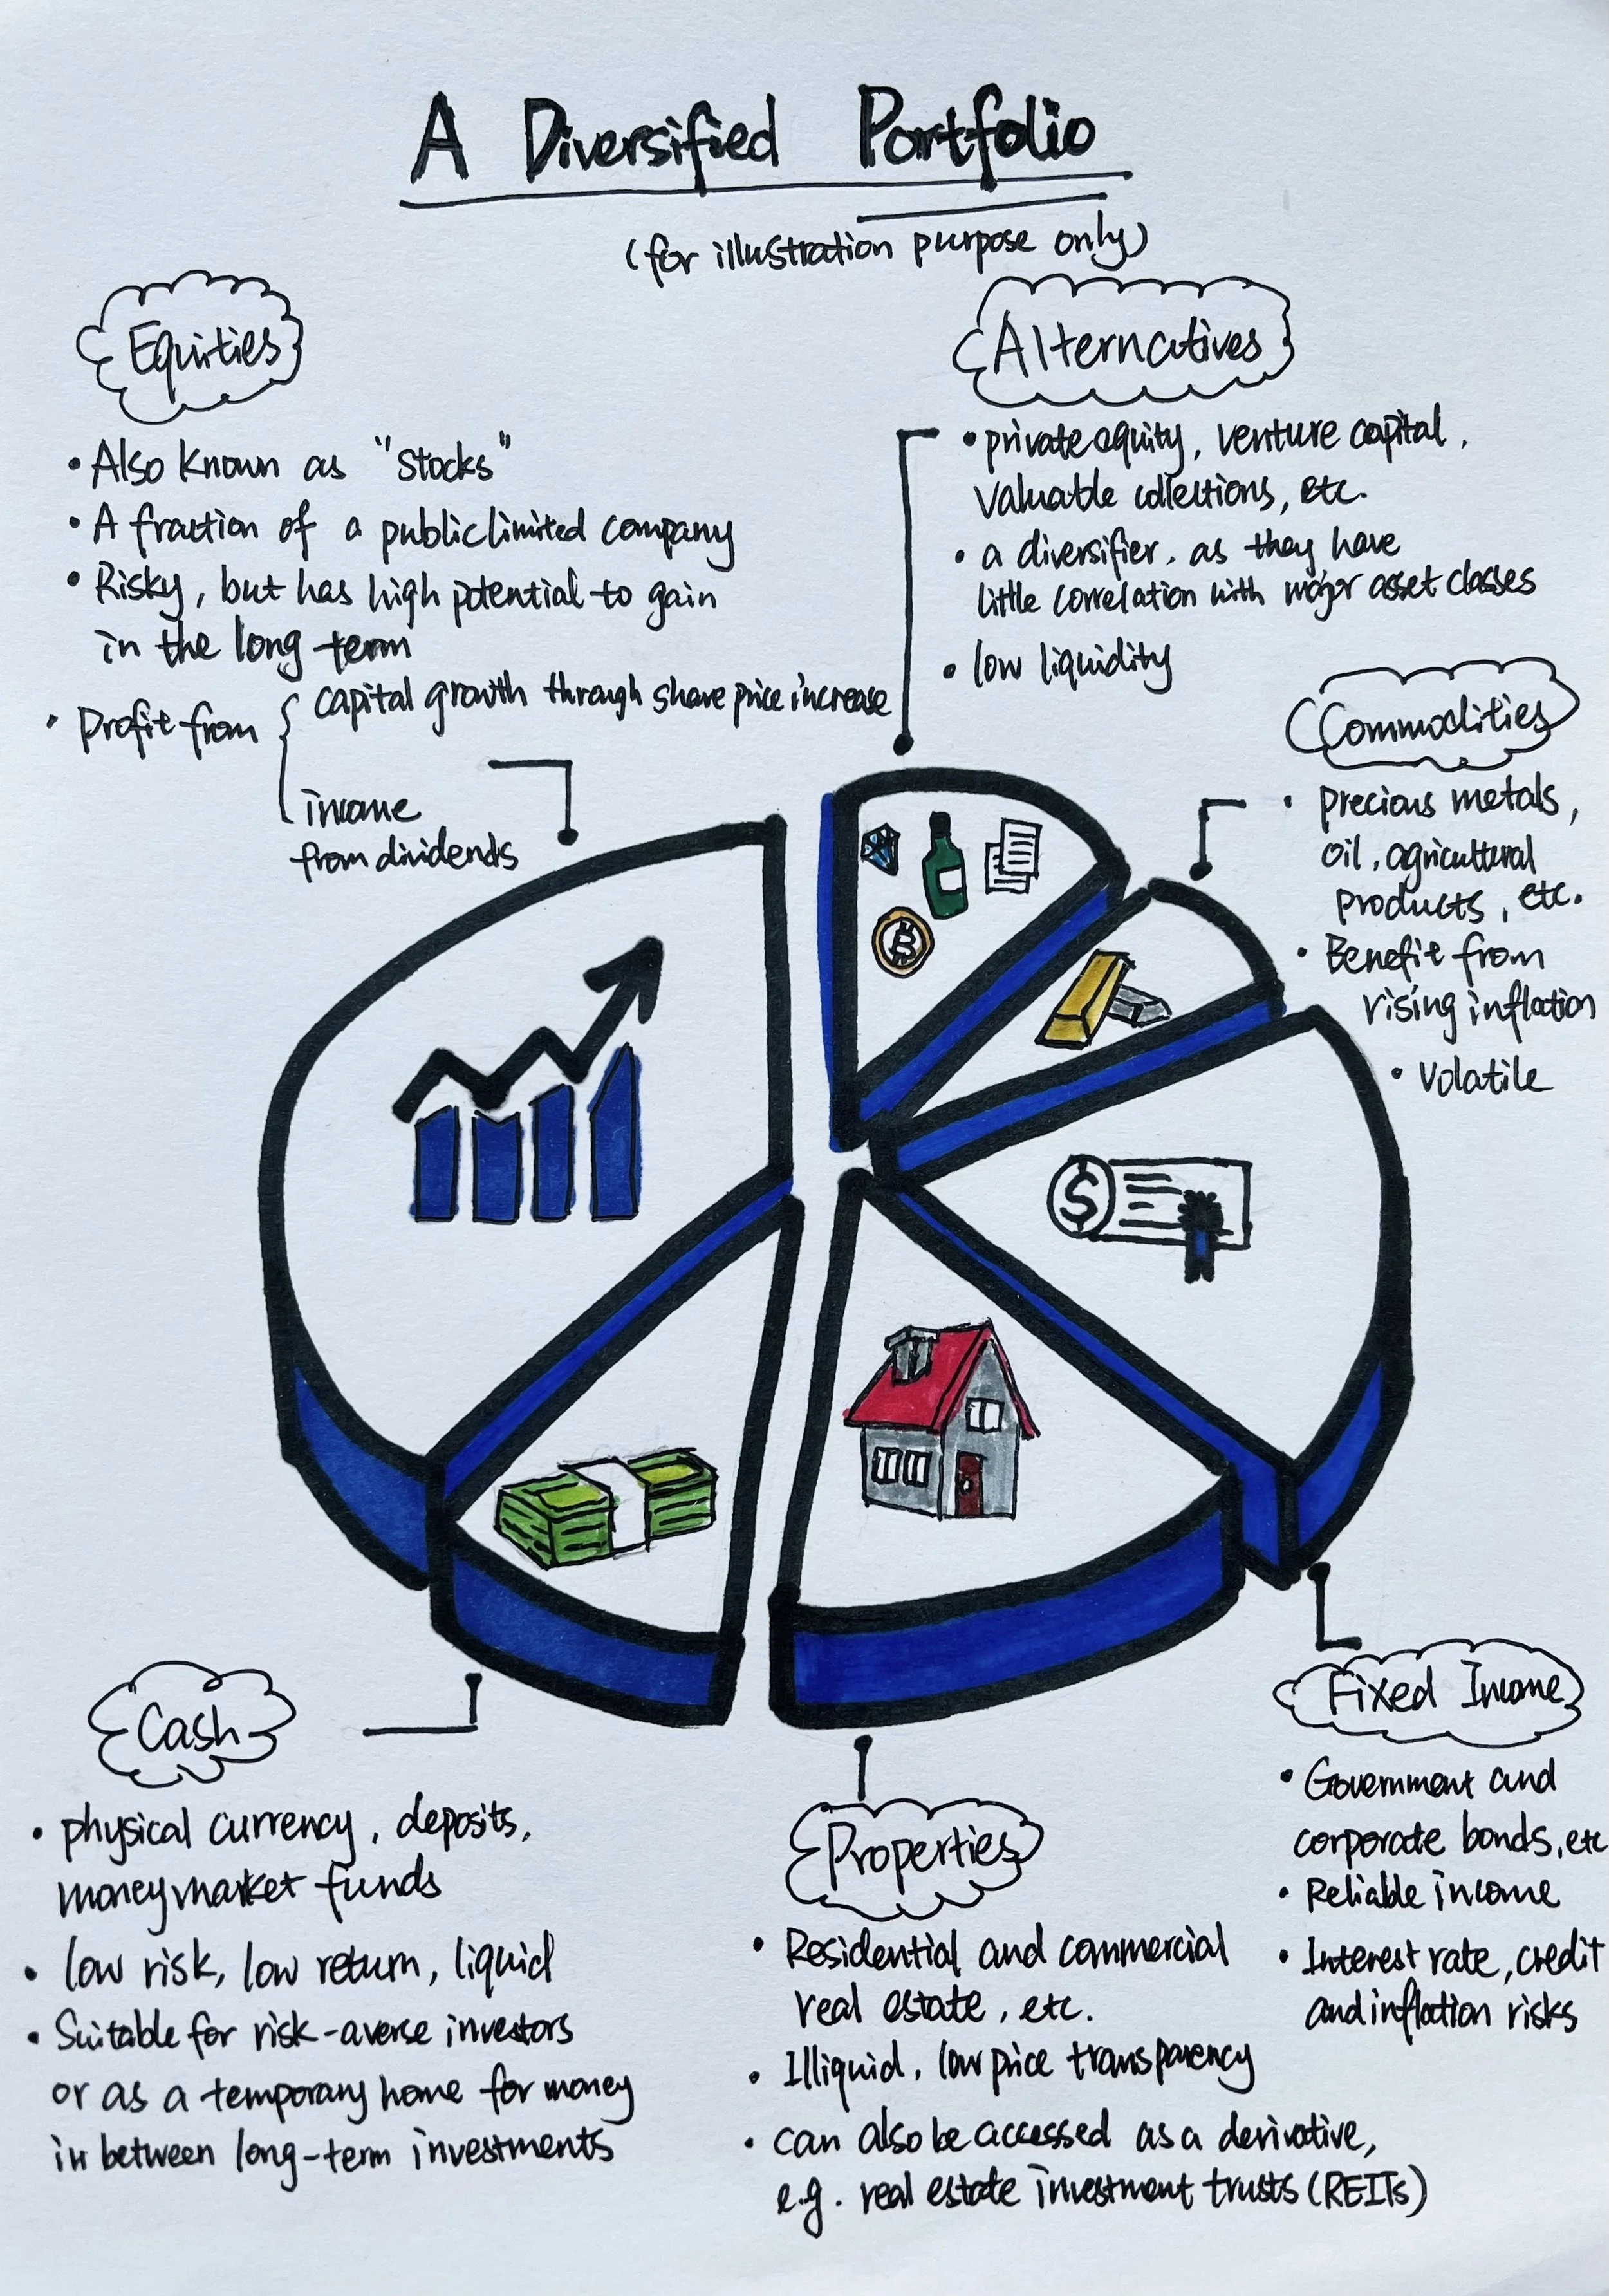 A Diversified Portfolio
(for illustration purpose only)
Equities
• Also known as "stocks"
• A fraction of a public limited company
• Risky, but has high potential to gain
in the long term
• Profit from { capital growth through share price increase
income
from dividends
Alternatives
• private equity, venture capital,
valuable collections, etc.
• a diversifier, as they have
little correlation with major asset classes
• low liquidity
Commodities
• precious metals,
oil, agricultural
products, etc.
• Benefit from
rising inflation
• Volatile
B
$
Cash
• physical currency, deposits,
money market funds
• low risk, low return, liquid
• Suitable for risk-averse investors
or as a temporary home for money
in between long-term investments
Properties
• Residential and commercial
real estate, etc.
• Illiquid, low price transparency
• can also be accessed as a derivative,
e.g. real estate investment trusts (REITs)
Fixed Income
• Government and
corporate bonds, etc
• Reliable income
• Interest rate, credit
and inflation risks